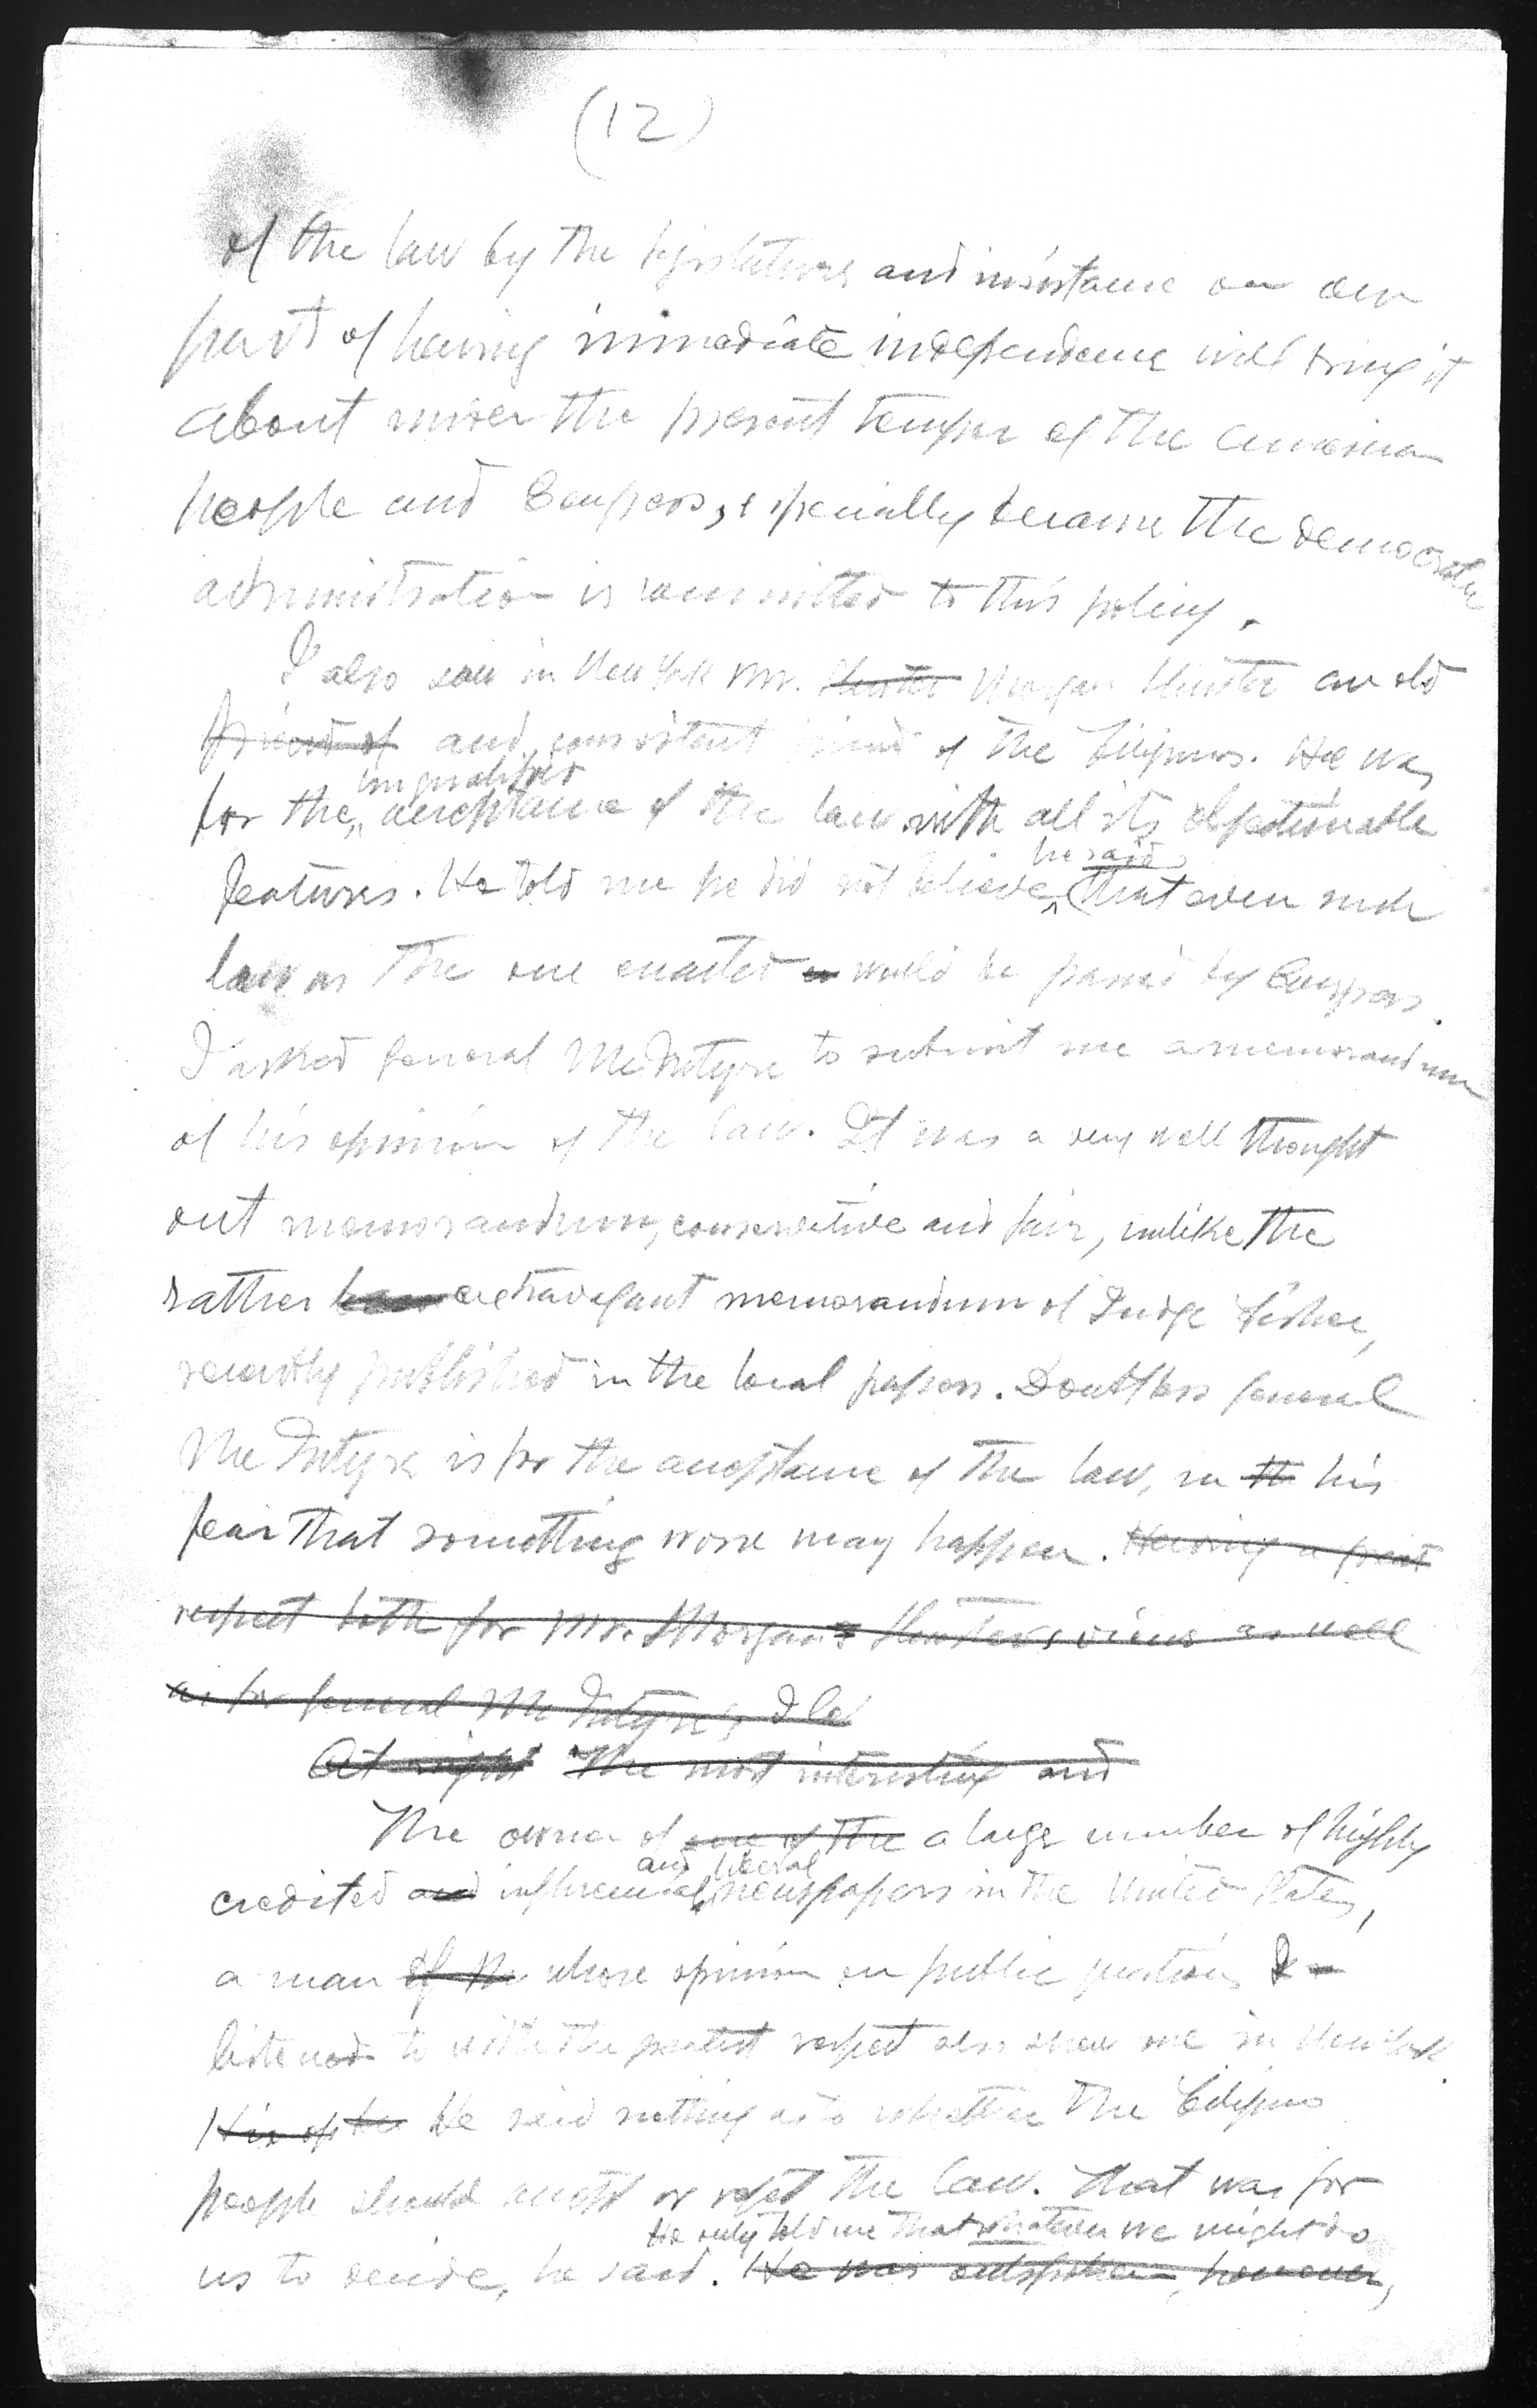 (12)
of the law by the legislature and insistance on our
part of having immediate independence will bring it
about under the present temper of the American
people and Congress, especially because the democratic
administration is committed to this policy.
I also saw in New York Mr. Hunter Morgan Shuster an old
friend of and consistent friend of the Filipinos. He was
unqualified
for the acceptance of the law with all its objectionable
he said
features. He told me he did not believe (that even such
law as the one enacted would be passed by Congress.
I asked General McIntyre to submit me a memorandum
of his opinion of the law. It was a very well thought
out memorandum, conservative and fair, unlike the
rather extravagant memorandum of Judge Fisher,
recently published in the local papers. Doubtless General
McIntyre is for the acceptance of the law, in th his
fear that something worse may happen. Having a great
respect both for Mr. Morgan's Shuster's views as well
as for General McIntyre's, I
At night The most interesting and
The owner of one of the a large number of highly
and liberal
credited and influential newspapers in the United States,
a man of whose opinion on public questions I
listened to with the greatest respect also saw me in New York
His op He He said nothing as to whether the Filipino
people should accept or reject the law. That was for
He only told me that whatever we might do
us to decide, he said. He was outspoken, however,